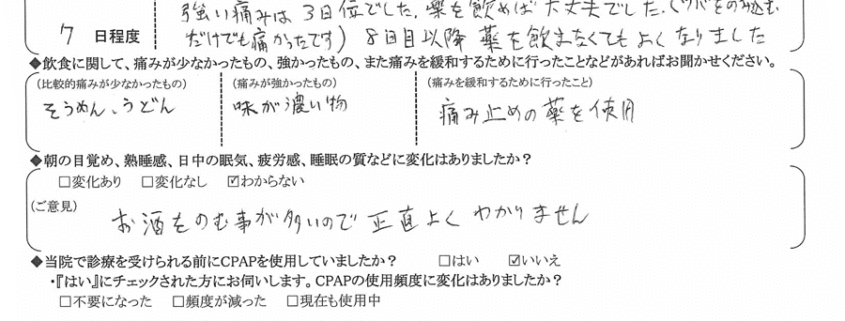 強い痛みは3日位でした。薬を飲めば大丈夫でした。(ツバをのみ込む
7 日程度 だけでも痛かったです) 8日目以降 薬を飲まなくてもよくなりました
◆飲食に関して、痛みが少なかったもの、強かったもの、また痛みを緩和するために行ったことなどがあればお聞かせください。
(比較的痛みが少なかったもの) (痛みが強かったもの) (痛みを緩和するために行ったこと)
そうめん、うどん 味が濃い物 痛み止めの薬を使用
◆朝の目覚め、熟睡感、日中の眠気、疲労感、睡眠の質などに変化はありましたか？
□変化あり □変化なし ☑わからない
(ご意見)
お酒をのむ事が多いので 正直よく わかりません
◆当院で診療を受けられる前にCPAPを使用していましたか？ □はい ☑いいえ
・『はい』にチェックされた方にお伺いします。CPAPの使用頻度に変化はありましたか？
□不要になった □頻度が減った □現在も使用中